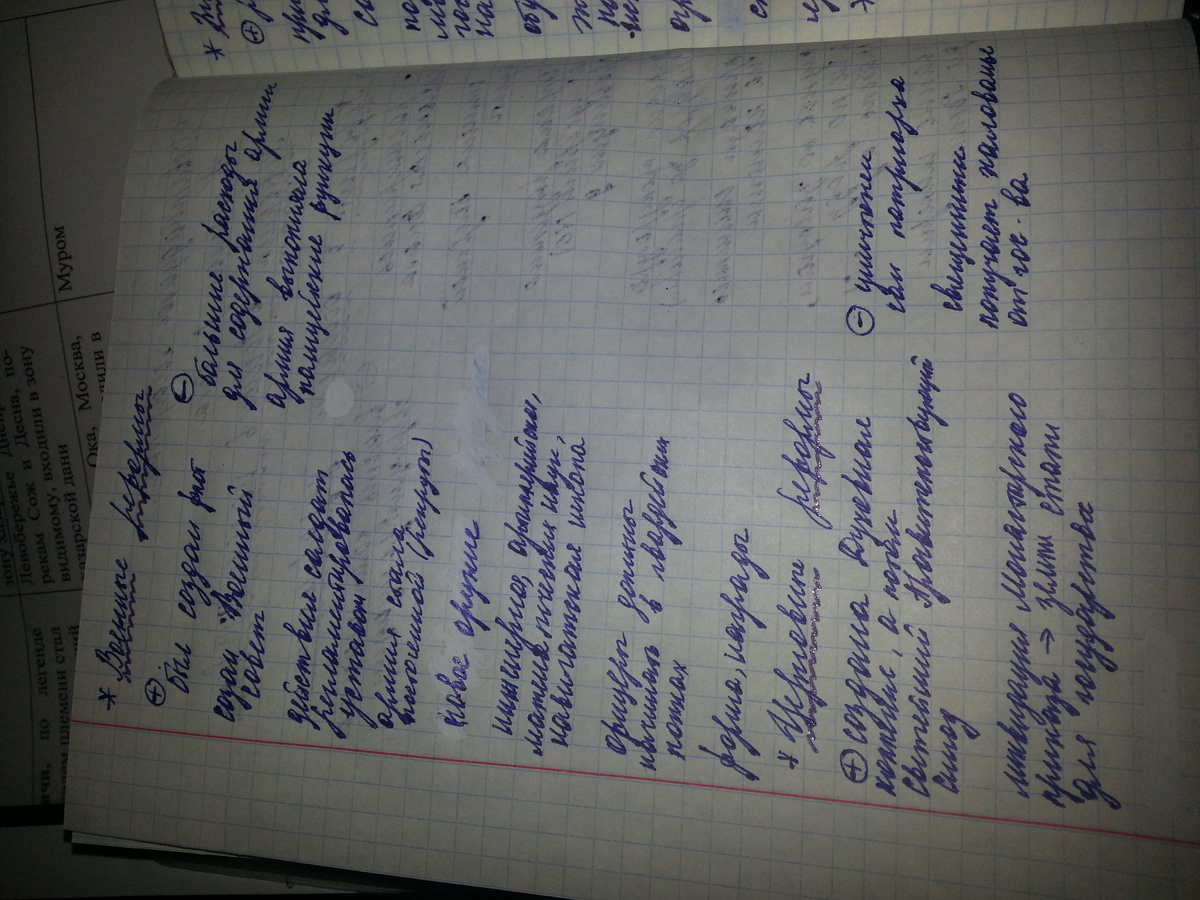 * Военные реформы
⊕
был создан флот
созд. "Военный
совет"
действия солдат
регламентировалась
уставом
армия стала
полноценной (рекрут)
новое оружие
инженерная, артиллерийская,
математических наук
навигатская школа
офицеры должны
начинать в гвардейских
полках
форма, награды
⊖
большие расходы
для содержания армии
армия выполняла
полицейские функции
* Церковные реформы
⊕ создана Духовная
коллегия, а потом
святейший Правительствующий
синод
ликвидация монастырского
приказа → земли стали
для государства
⊖ уничтожен
сан патриарха
священники
получают жалованье
от гос-ва
зону
Левобережье Днепр-
рекам Сож и Десна, по-
видимому, входили в зону
хазарской дани
Ока, Москва,
Муром
по легенде
племени стал